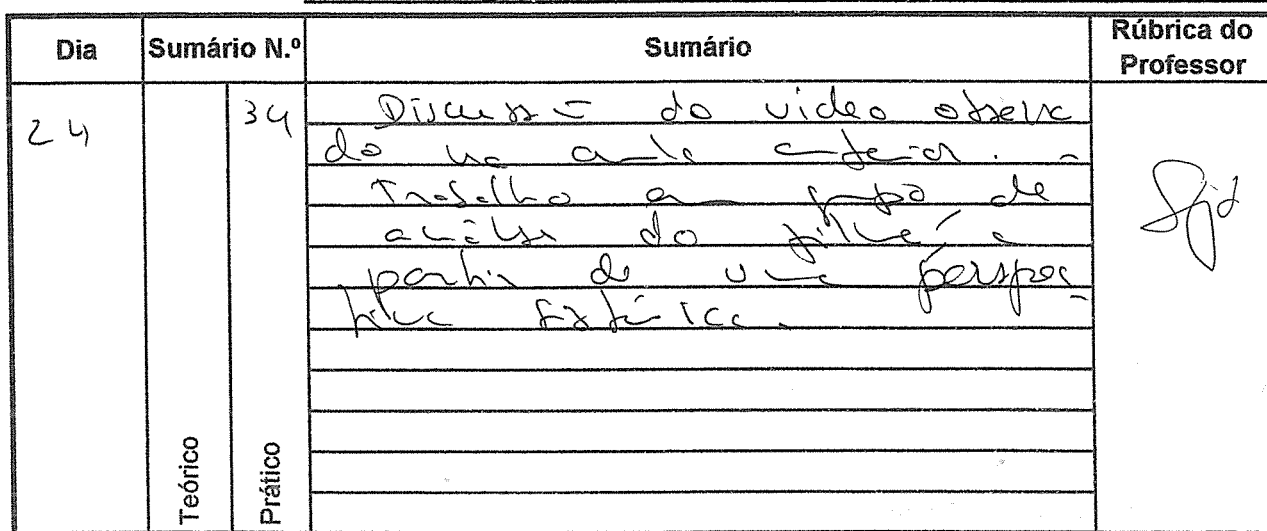 Dia Sumário N.º Sumário Rúbrica do Professor
24 34 Discussão do video observa
do na aula anterior. -
Trabalho em grupo de
análise do filme, a
partir de uma perspec-
tiva
Teórico Prático